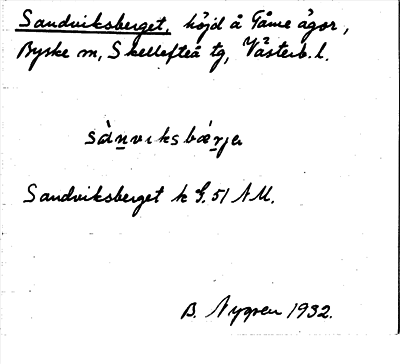 Sandviksberget, höjd å Tåme ägor,
Byske sn, Skellefteå tg, Västerb. l.
sànviksbærje
Sandviksberget k G. 51 NU.
B. Nygren 1932.